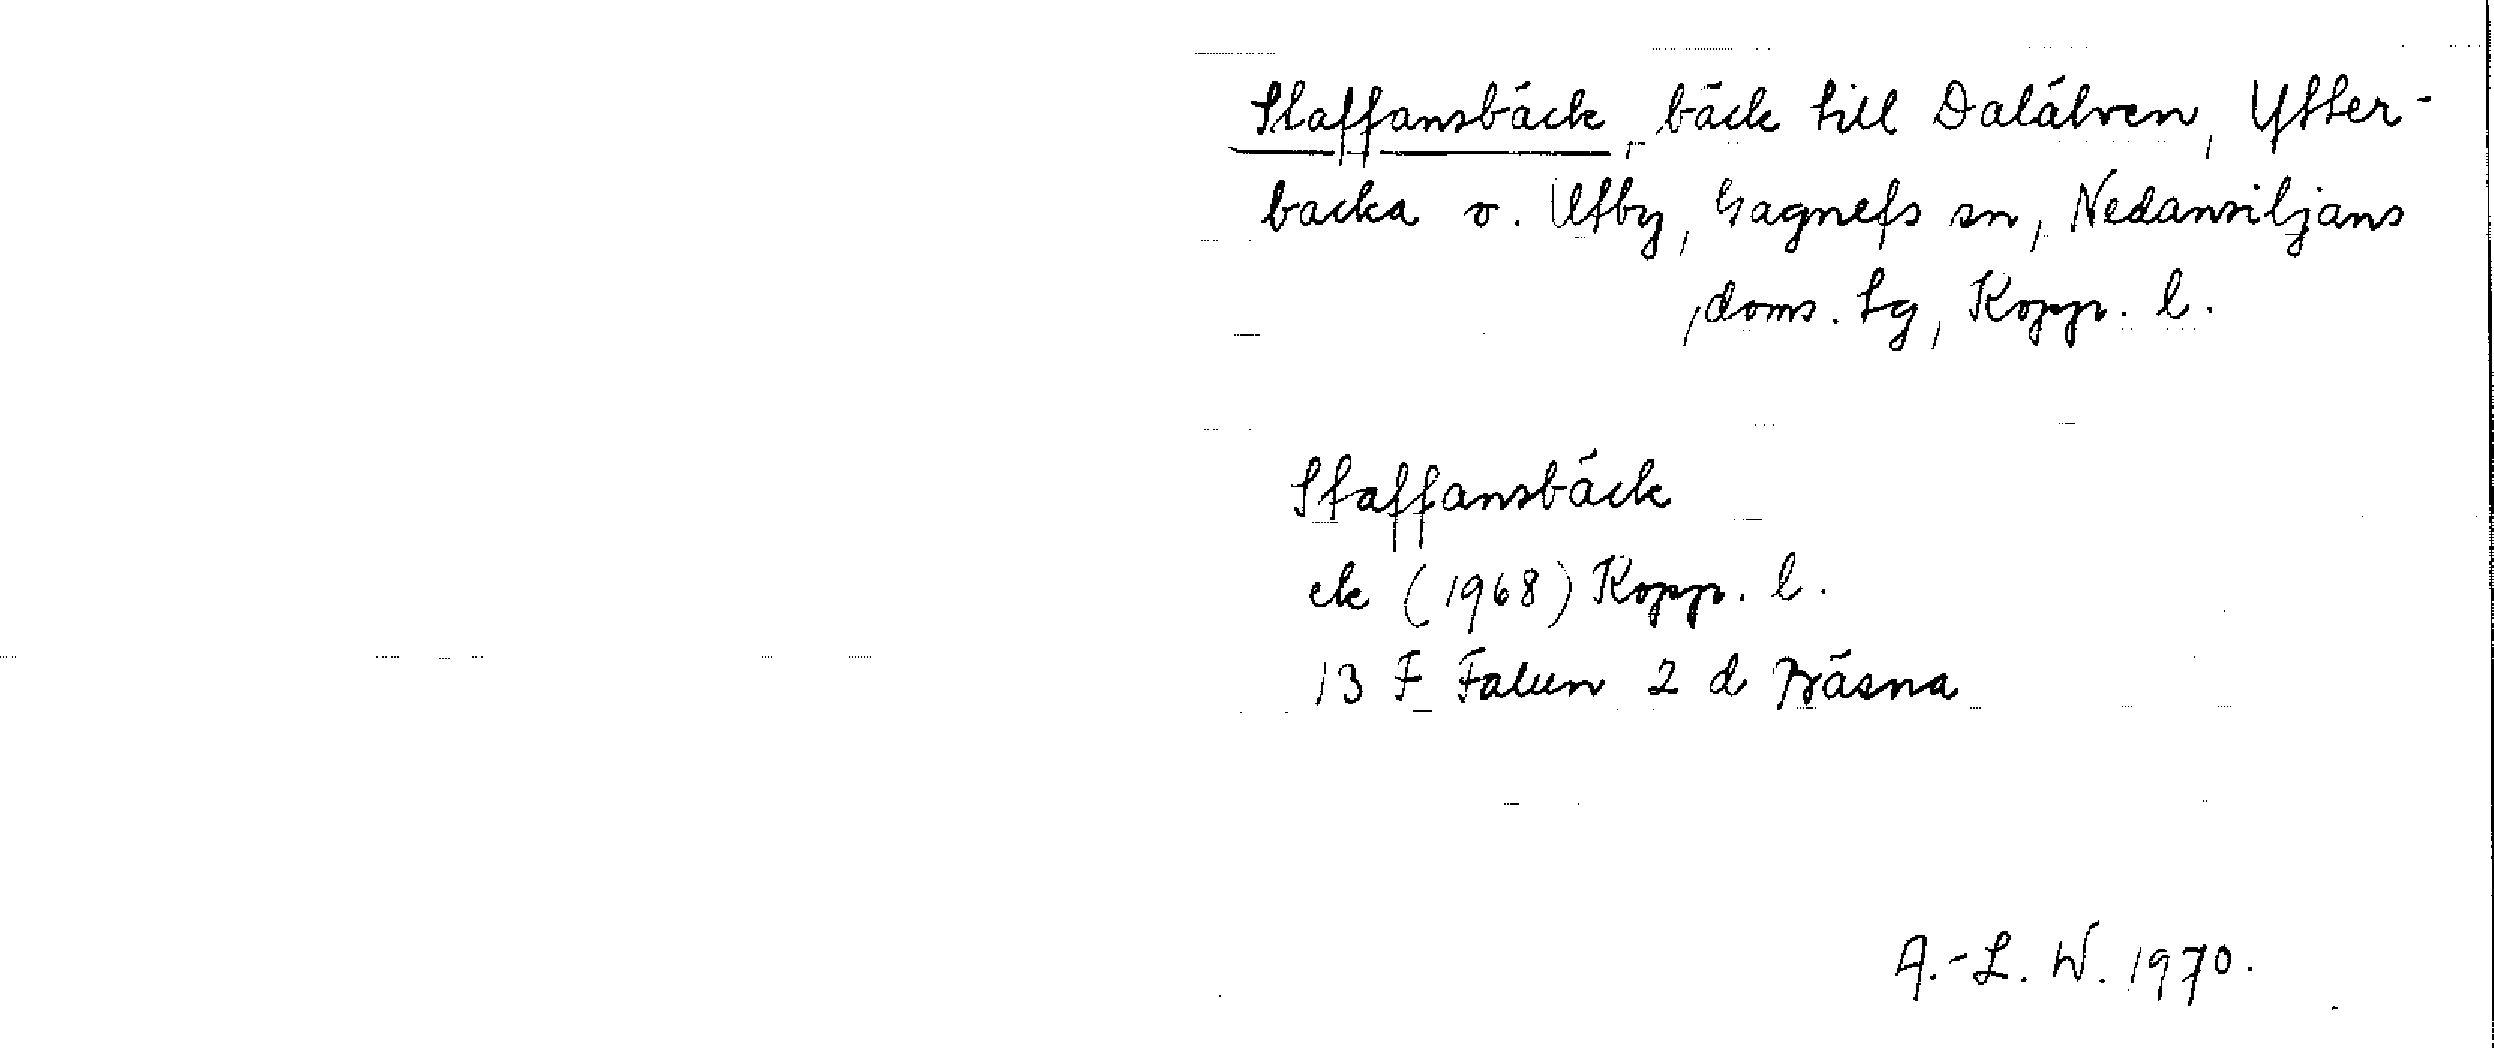 Staffansbäck, bäck till Dalälven, Ytter-
backa o. Utby, Gagnefs sn, Nedansiljans
doms. tg, Kopp. l.
Staffansbäck
ek (1968) Kopp. l.
13 F Falun 2 d Bäsna
A.-L. W. 1970.